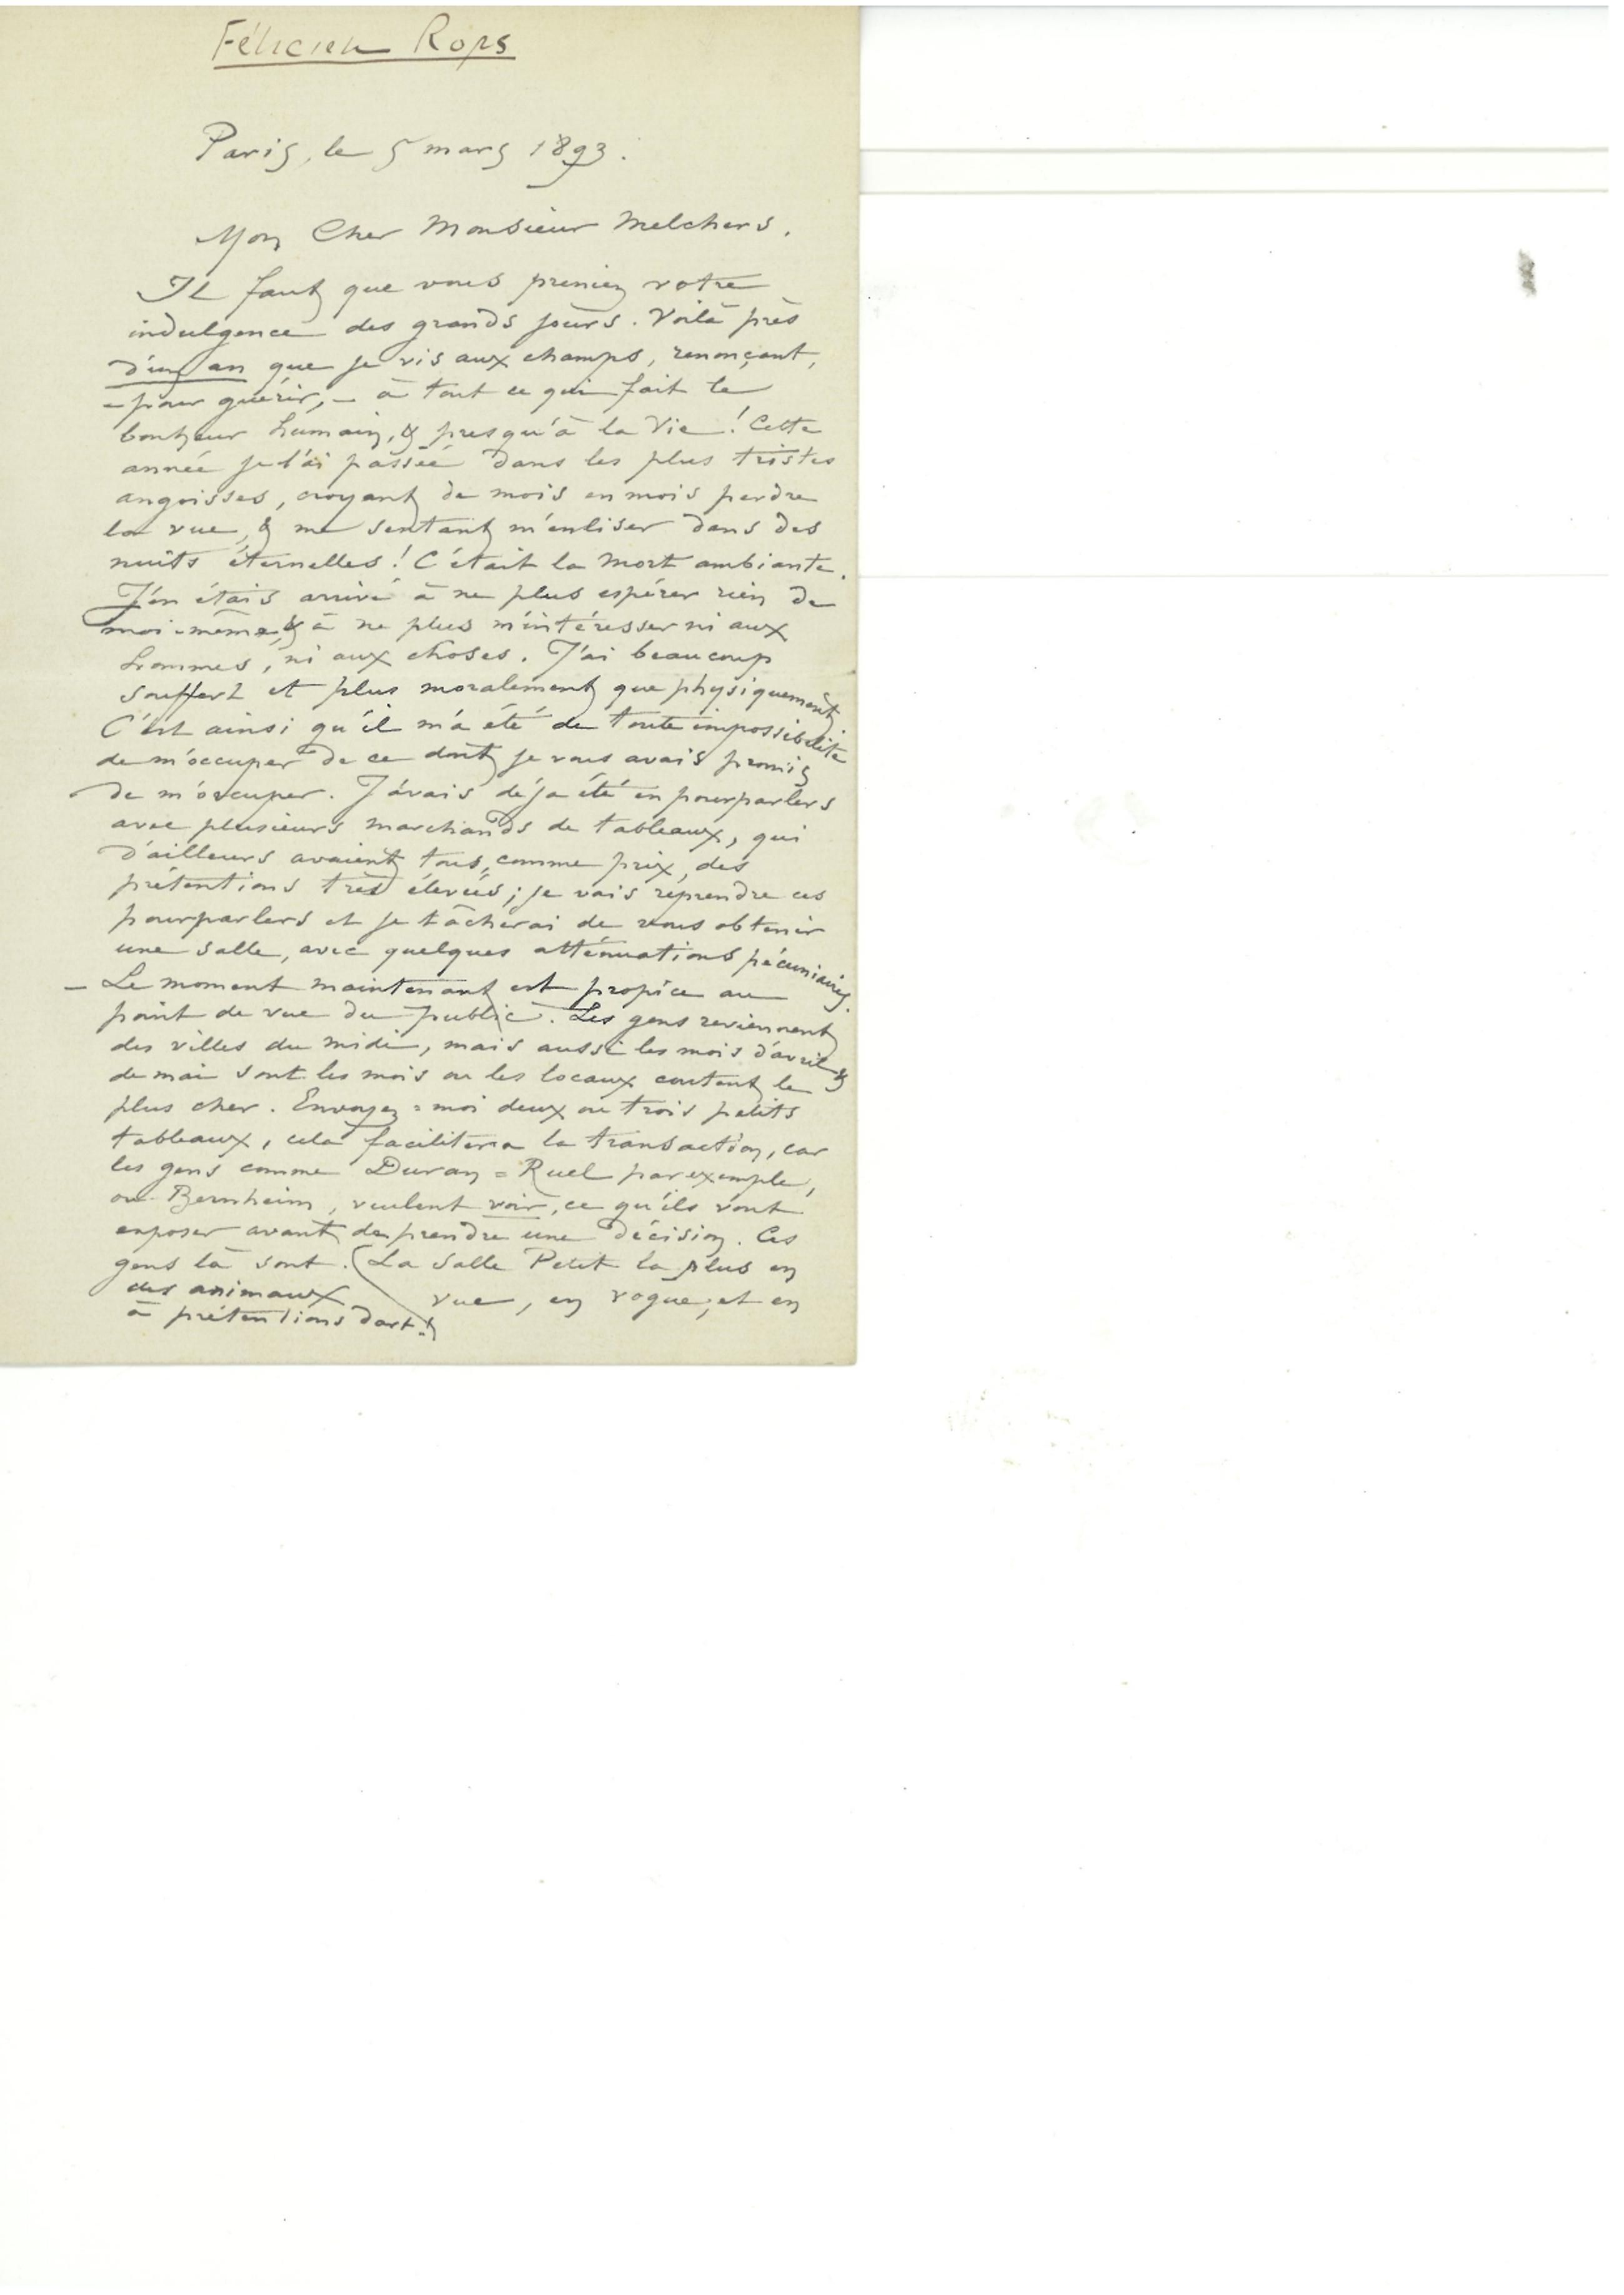 Félicien Rops
Paris, le 5 mars 1893.
Mon Cher Monsieur Melchers.
Il faut que vous preniez votre
indulgence des grands jours. Voilà près
d'un an que je vis aux champs, renonçant,
– pour guérir, – à tout ce qui fait le
bonheur humain, & presqu'à la Vie ! Cette
année je l'ai passée dans les plus tristes
angoisses, croyant de mois en mois perdre
la vue, & me sentant m'enliser dans des
nuits éternelles ! C'était la mort ambiante.
J'en étais arrivé à ne plus espérer rien de
moi-même, & à ne plus m'intéresser ni aux
hommes, ni aux choses. J'ai beaucoup
souffert et plus moralement que physiquement
C'est ainsi qu'il m'a été de toute impossibilité
de m'occuper de ce dont je vous avais promis
de m'occuper. J'avais déja été en pourparlers
avec plusieurs marchands de tableaux, qui
d'ailleurs avaient tous, comme prix, des
prétentions très élevées ; je vais reprendre ces
pourparlers et je tâcherai de vous obtenir
une salle, avec quelques atténuations pécuniaires.
– Le moment maintenant est propice au
point de vue du public. Les gens reviennent
des villes du midi, mais aussi les mois d'avril &
de mai sont les mois ou les locaux coutent le
plus cher. Envoyez=moi deux ou trois petits
tableaux, cela facilitera la transaction, car
les gens comme Duran=Ruel par exemple,
ou Bernheim, veulent voir, ce qu'ils vont
exposer avant de prendre une décision. Ces
gens là sont. (La Salle Petit la plus en
des animaux vue, en vogue, et en
à prétentions d'art !)